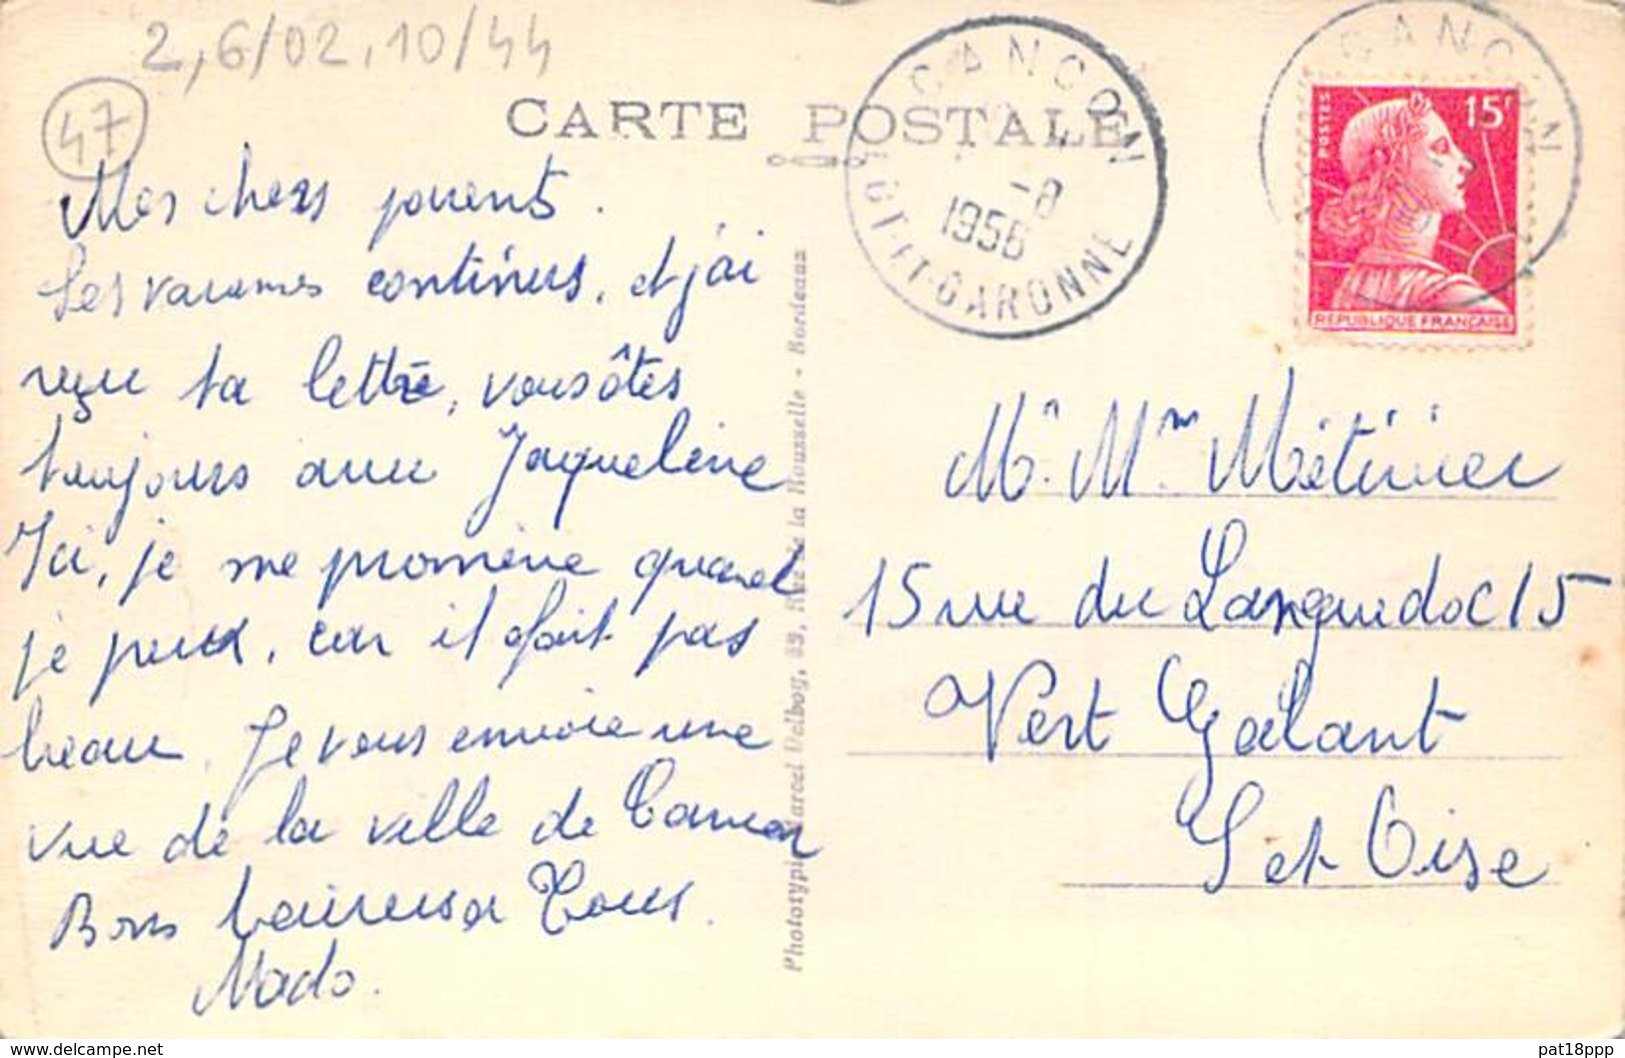 2,6/02,10/44
47
CARTE POSTALE
CANCON
-8
1956
LOT-ET-GARONNE
CANCON
POSTES
15F
REPUBLIQUE FRANÇAISE
Mes chers parents.
Les vacances continus, et j'ai
reçu ta lettre, vous êtes
toujours avec Jaqueline
Ici, je me promène quand
je peux, car il fait pas
beau. Je vous envoie une
vue de la ville de Cancon
Bons baisers a Tous.
Mado.
Phototypie Marcel Delboy, 89, Rue de la Rousselle - Bordeaux
Mr. Mme Métivier
15 rue du Languedoc 15
Vert Galant
S et Oise
www.delcampe.net
pat18ppp